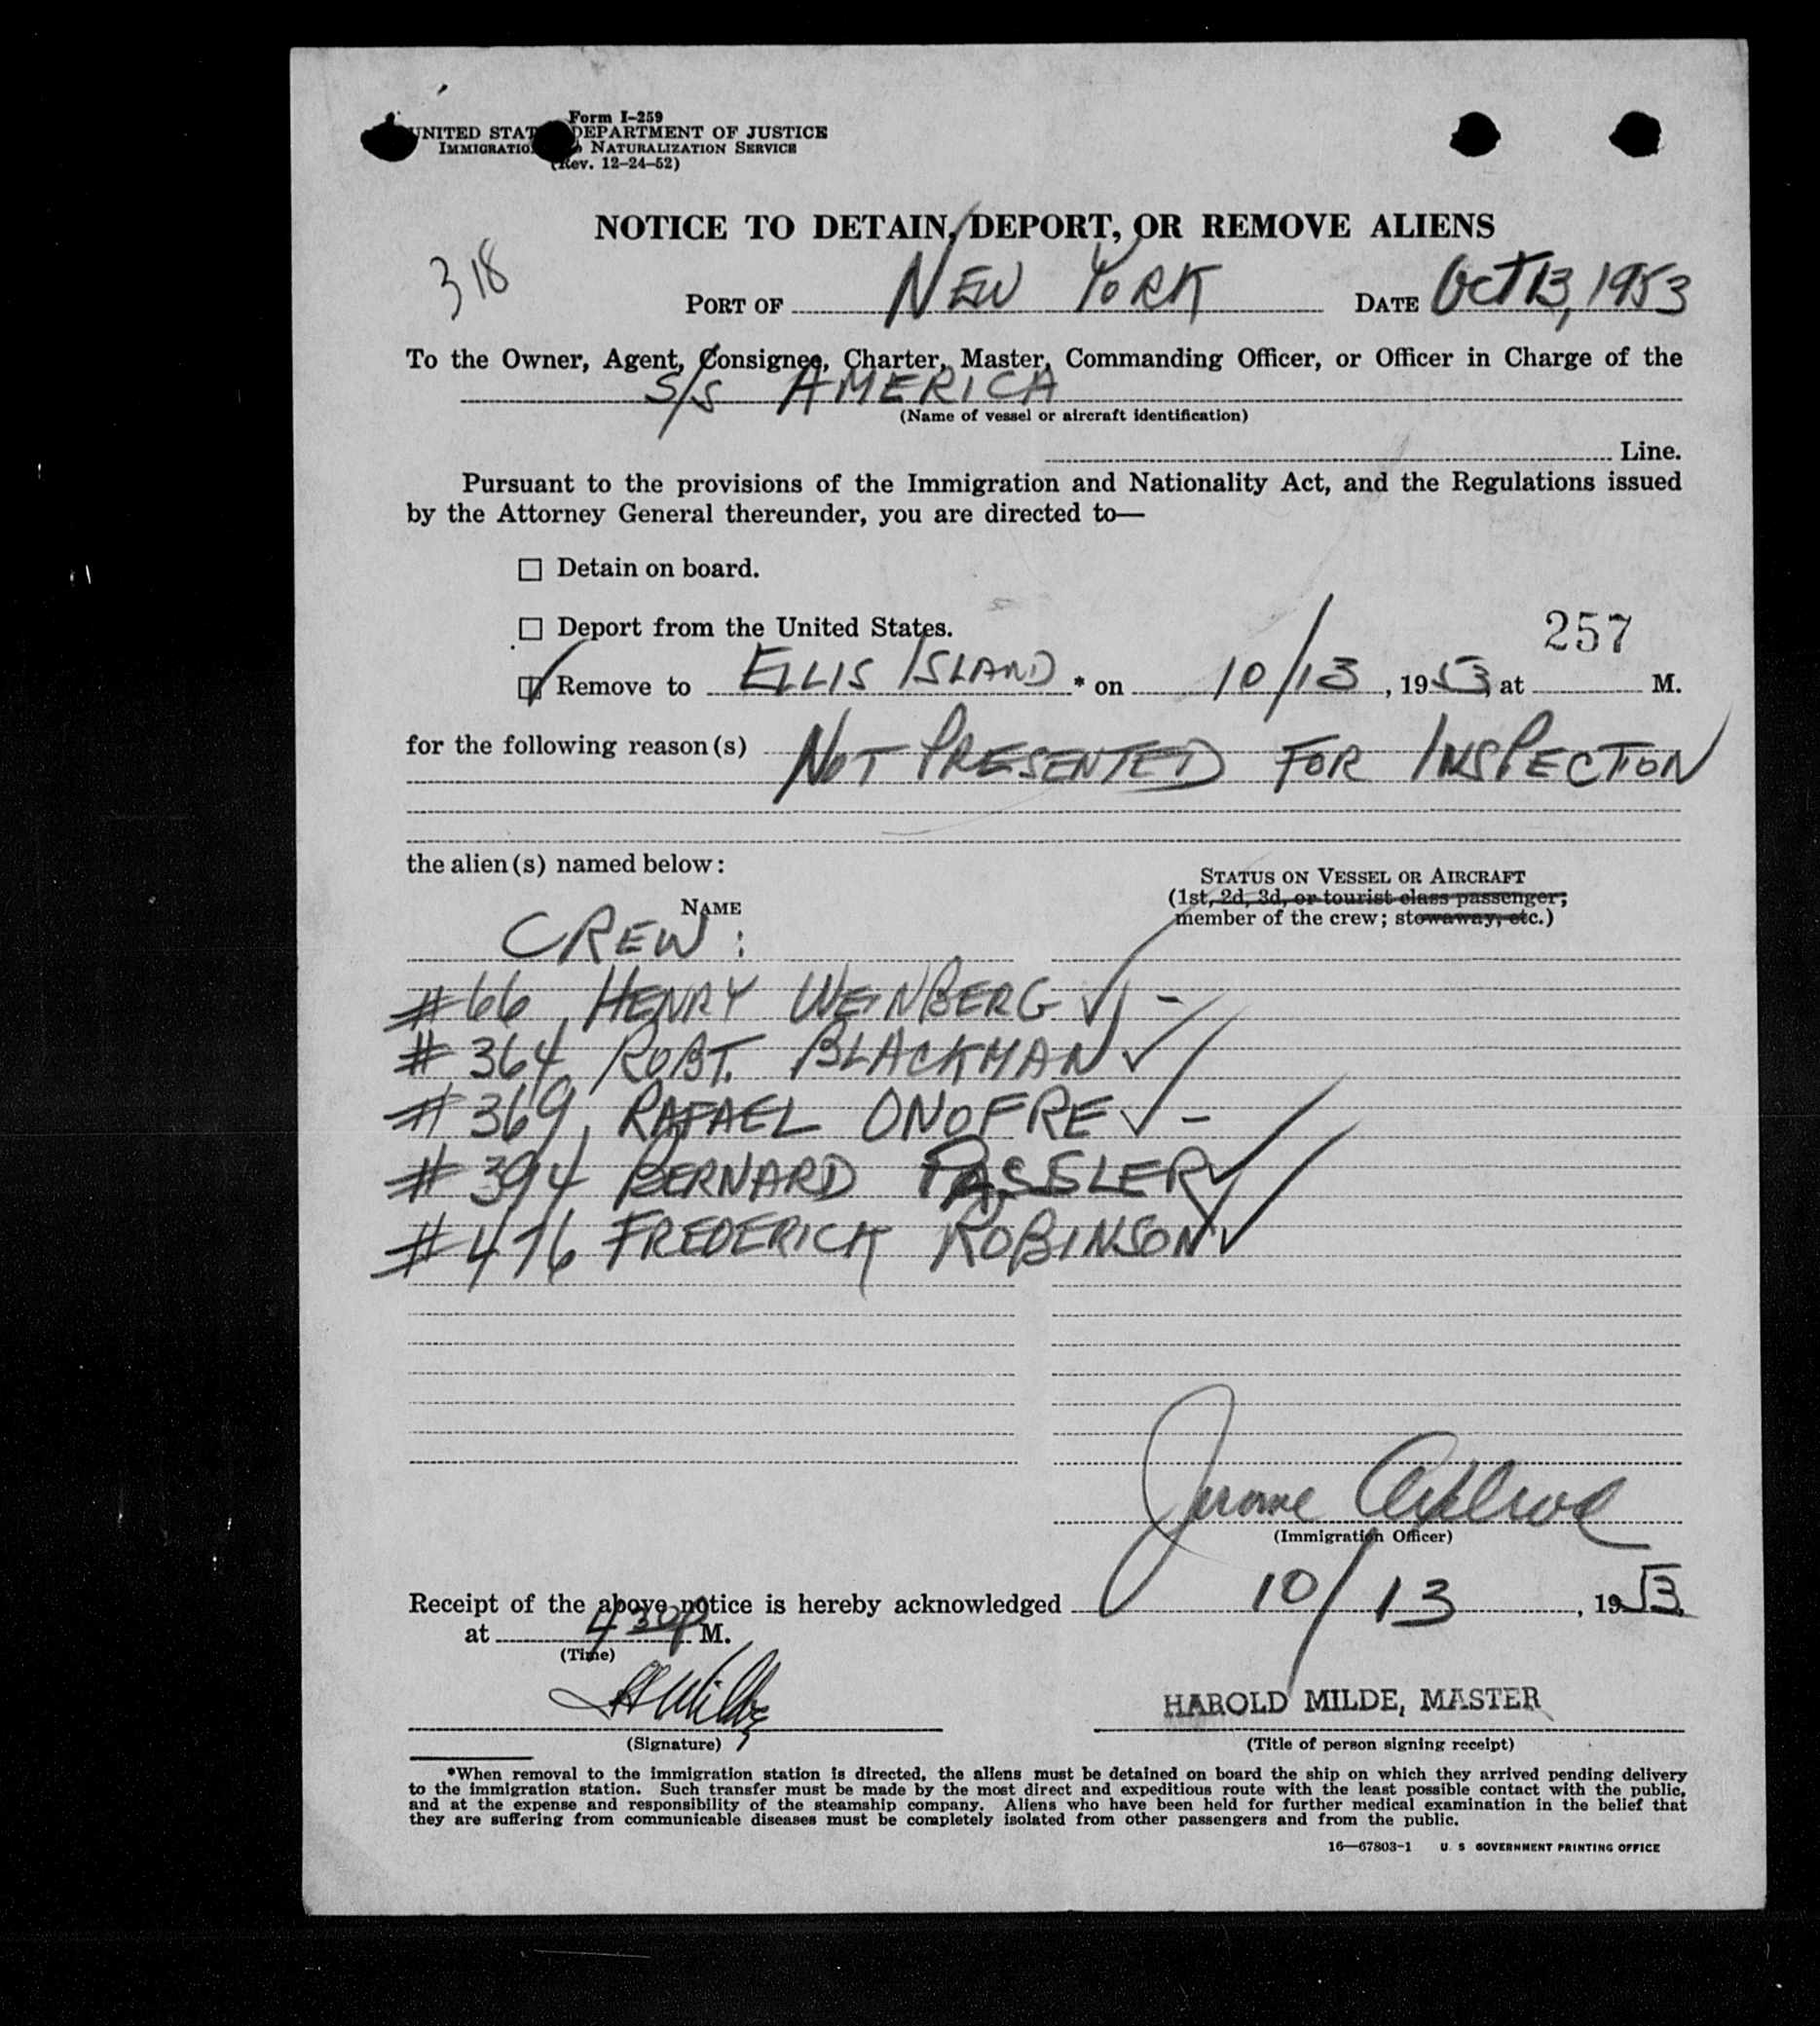 Form I-259
UNITED STAT DEPARTMENT OF JUSTICE
IMMIGRATIO NATURALIZATION SERVICE
(Rev. 12-24-52)
NOTICE TO DETAIN, DEPORT, OR REMOVE ALIENS
318
PORT OF NEW YORK DATE Oct 13, 1953
To the Owner, Agent, Consignee, Charter, Master, Commanding Officer, or Officer in Charge of the
S/S AMERICA
(Name of vessel or aircraft identification)
Line.
Pursuant to the provisions of the Immigration and Nationality Act, and the Regulations issued
by the Attorney General thereunder, you are directed to—
Detain on board.
Deport from the United States.
257
Remove to ELLIS ISLAND * on 10/13, 1953, at M.
for the following reason(s) NOT PRESENTED FOR INSPECTION
the alien(s) named below:
STATUS ON VESSEL OR AIRCRAFT
(1st, 2d, 3d, or tourist class passenger;
member of the crew; stowaway, etc.)
NAME
CREW:
#66, HENRY WEINBERG ✓ -
#364, ROBT. BLACKMAN ✓
#369, RAFAEL ONOFRE ✓ -
#394 BERNARD PASSLER ✓
#476 FREDERICK ROBINSON ✓
Jerome Axelrod
(Immigration Officer)
Receipt of the above notice is hereby acknowledged 10/13, 1953
at 4 30p M.
(Time)
H Milde
HAROLD MILDE, MASTER
(Signature)
(Title of person signing receipt)
*When removal to the immigration station is directed, the aliens must be detained on board the ship on which they arrived pending delivery
to the immigration station. Such transfer must be made by the most direct and expeditious route with the least possible contact with the public,
and at the expense and responsibility of the steamship company. Aliens who have been held for further medical examination in the belief that
they are suffering from communicable diseases must be completely isolated from other passengers and from the public.
16—67803-1 U. S GOVERNMENT PRINTING OFFICE